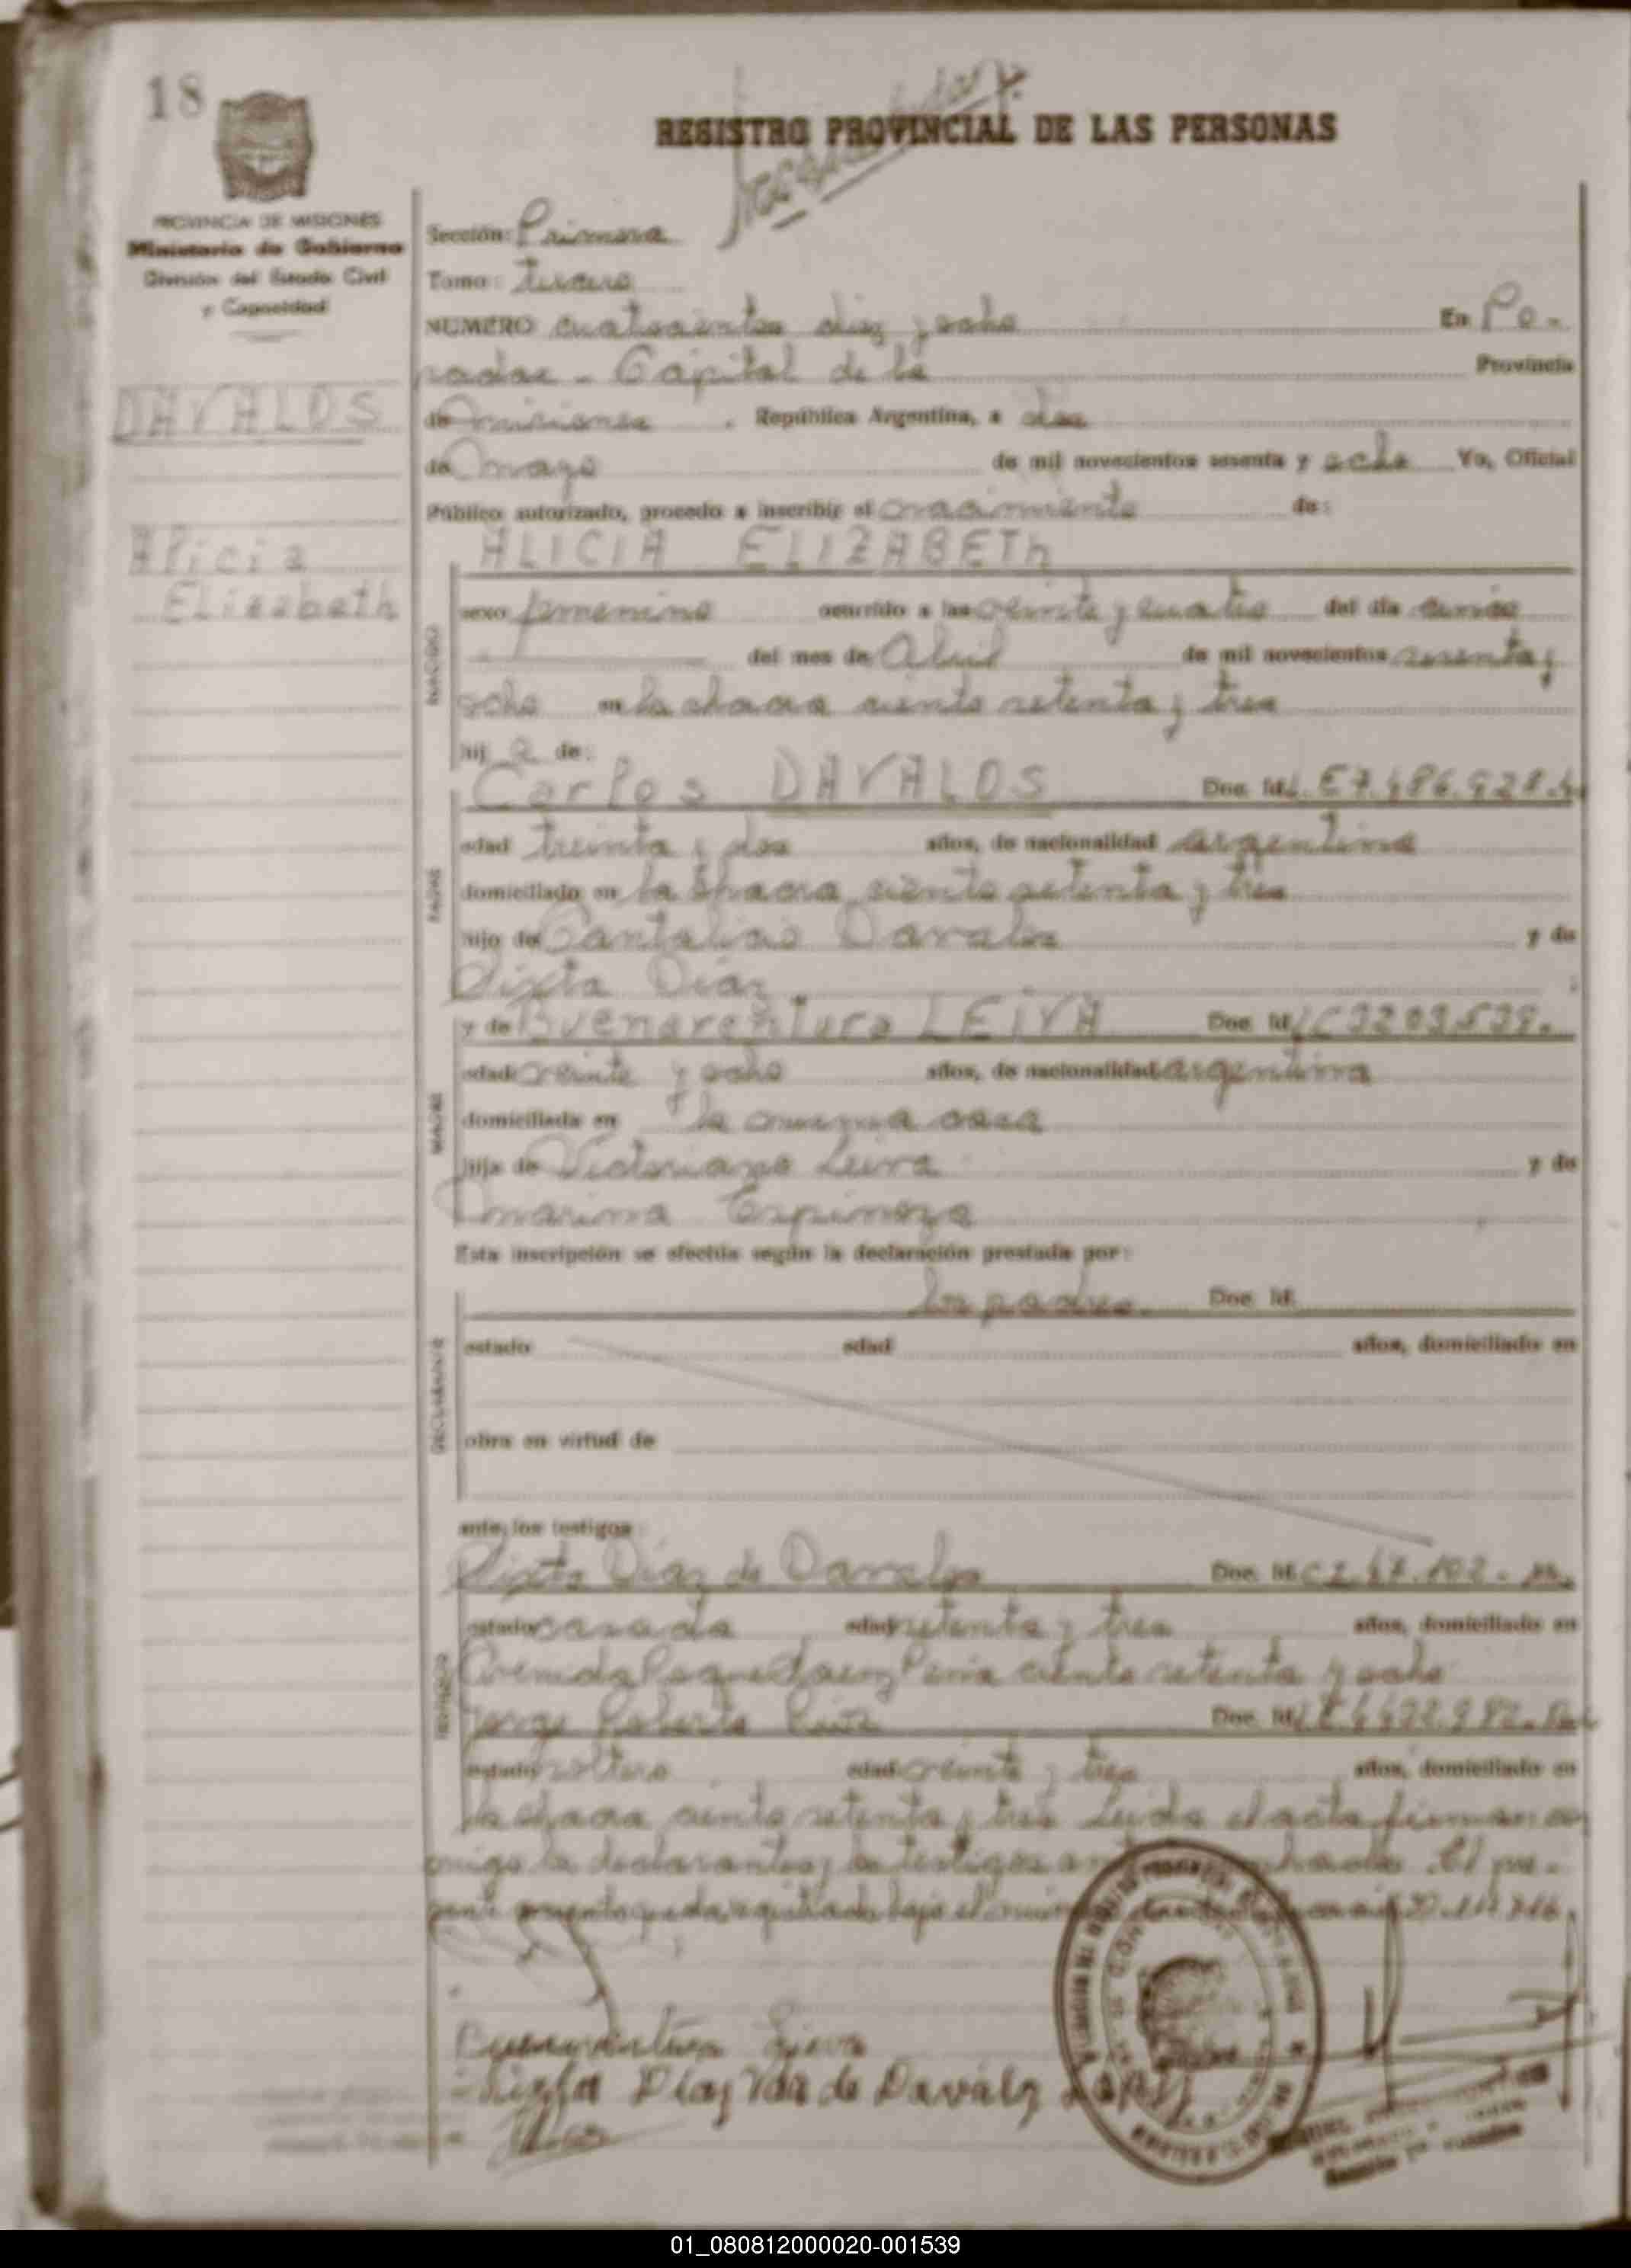 18
REGISTRO PROVINCIAL DE LAS PERSONAS
PROVINCIA DE MISIONES
Ministerio de Gobierno
División del Estado Civil
y Capacidad
Sección: Primera
Tomo: tercero
NUMERO cuatrocientos diez y ocho En Po-
sadas - Capital de la Provincia
DAVALOS
de Misiones, República Argentina, a dos
de Mayo de mil novecientos sesenta y ocho Yo, Oficial
Público autorizado, procedo a inscribir el nacimiento de:
Alicia
Elizabeth
ALICIA ELIZABETh
NACIDO
sexo femenino ocurrido a las veinte y cuatro del día
del mes de Abril de mil novecientos sesenta y
ocho en la chacra ciento setenta y tres
hij a de:
Carlos DAVALOS Doc. Id.
PADRE
edad treinta y dos años, de nacionalidad argentina
domiciliado en la chacra ciento setenta y tres
hijo de Cantalicio Davalos y de
Sixta Diaz
y de Buenaventura LEIVA Doc. Id. LC 3203539.
MADRE
edad veinte y ocho años, de nacionalidad argentina
domiciliada en la misma casa
hija de Victoriano Leiva y de
Marina Espinoza
Esta inscripción se efectúa según la declaración prestada por:
los padres. Doc. Id.
DECLARANTE
estado edad años, domiciliado en
obra en virtud de
ante los testigos:
Sixta Diaz de Davalos Doc. Id.
TESTIGOS
estado casada edad setenta y tres años, domiciliado en
Avenida Roque Saenz Peña ciento setenta y ocho
Jorge Roberto Doc. Id.
estado soltero edad veinte y tres años, domiciliado en
la chacra ciento setenta y tres Leida el acta firman con
migo los declarantes y los testigos El pre-
sente asiento queda registrado bajo el
Buenaventura Leiva
Sixta Diaz Vda de Davalos
01_080812000020-001539